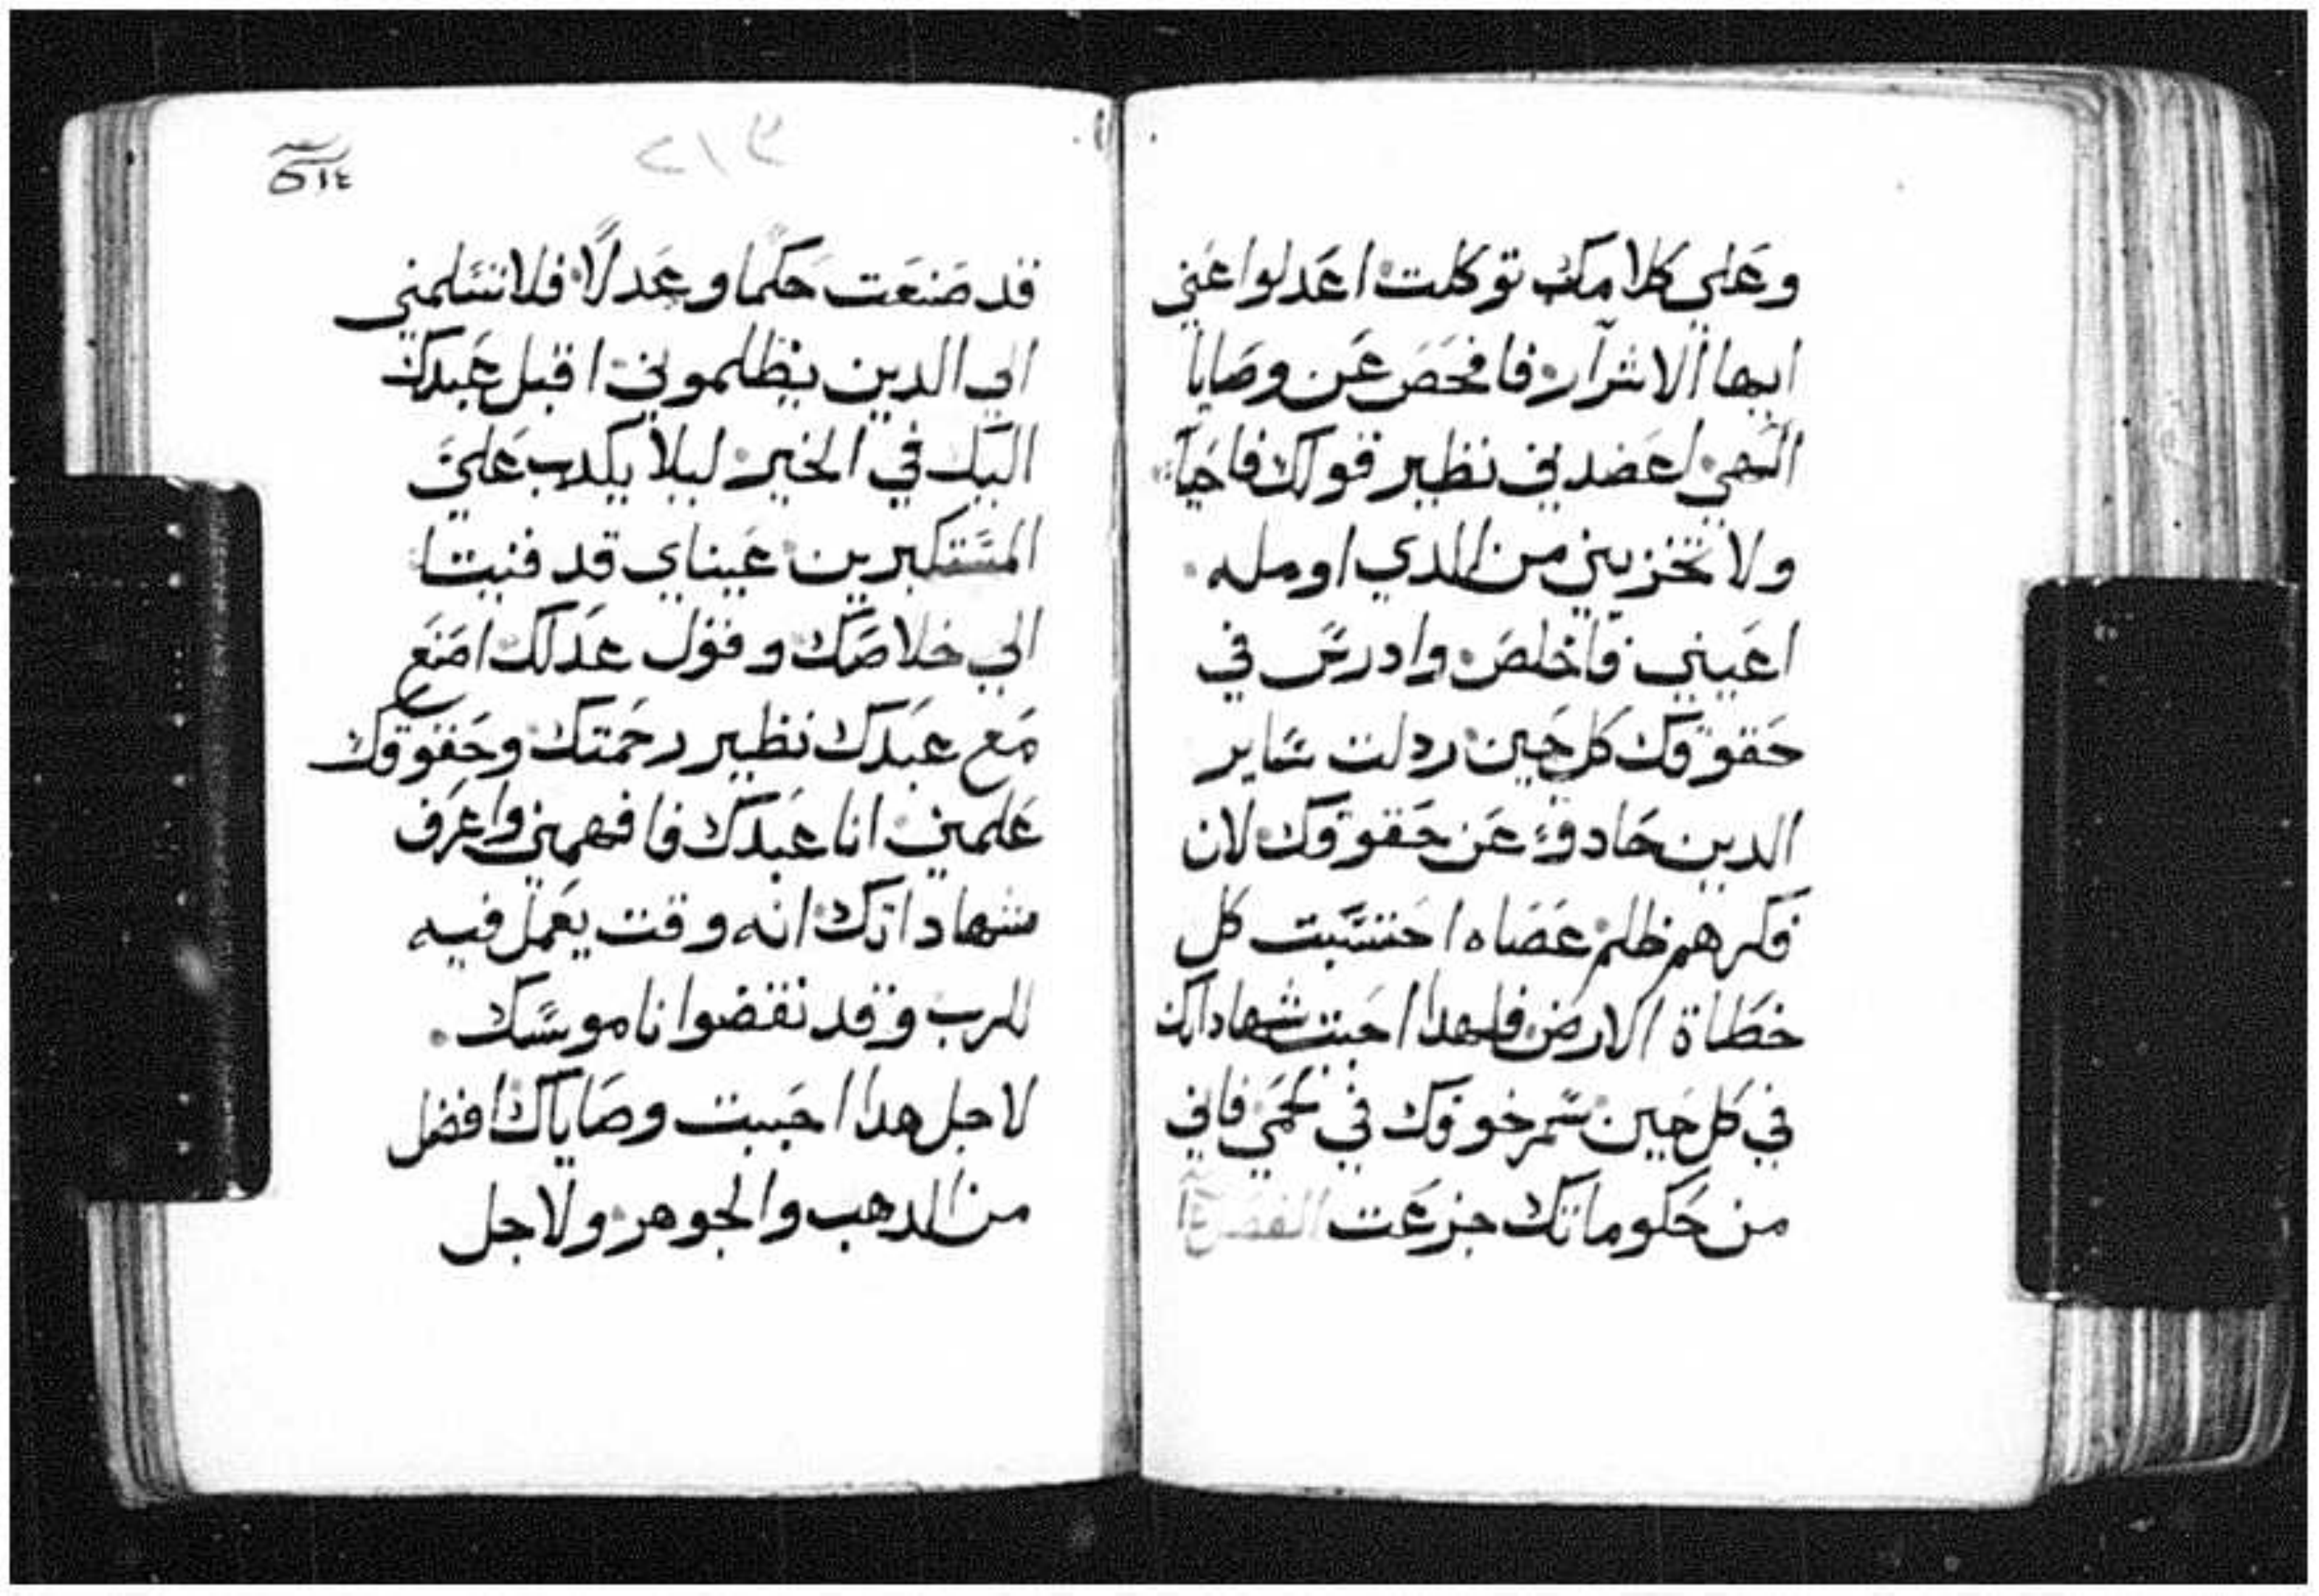 وعلي كلامك توكلت اعدلوا عني
ايها الاشرار فافحص عن وصايا
الهي اعضدني نظير قولك فاحيا
ولا تخزيني من الدي اومله
اعيني فاخلص وادرس في
حقوقك كل حين ردلت ساير
الدين حادو عن حقوقك لان
فكرهم ظلم عصاه احتسبت كل
خطاة الارض فلهدا احببت شهاداتك
في كل حين سمر خوفك في لحمي فاني
من حكوماتك جزعت الفصل
٢١٣
قد صنعت حكما وعدلا فلا تسلمني
الي الدين يظلموني اقبل عبدك
اليك في الخير ليلا يكدب علي
المستكبرين عيناي قد فنيتا
الي خلاصك وقول عدلك اصنع
مع عبدك نظير رحمتك وحقوقك
علمني انا عبدك فافهمني واعرف
شهاداتك انه وقت يعمل فيه
للرب وقد نقضوا ناموسك
لاجل هدا احببت وصاياك افضل
من الدهب والجوهر ولاجل